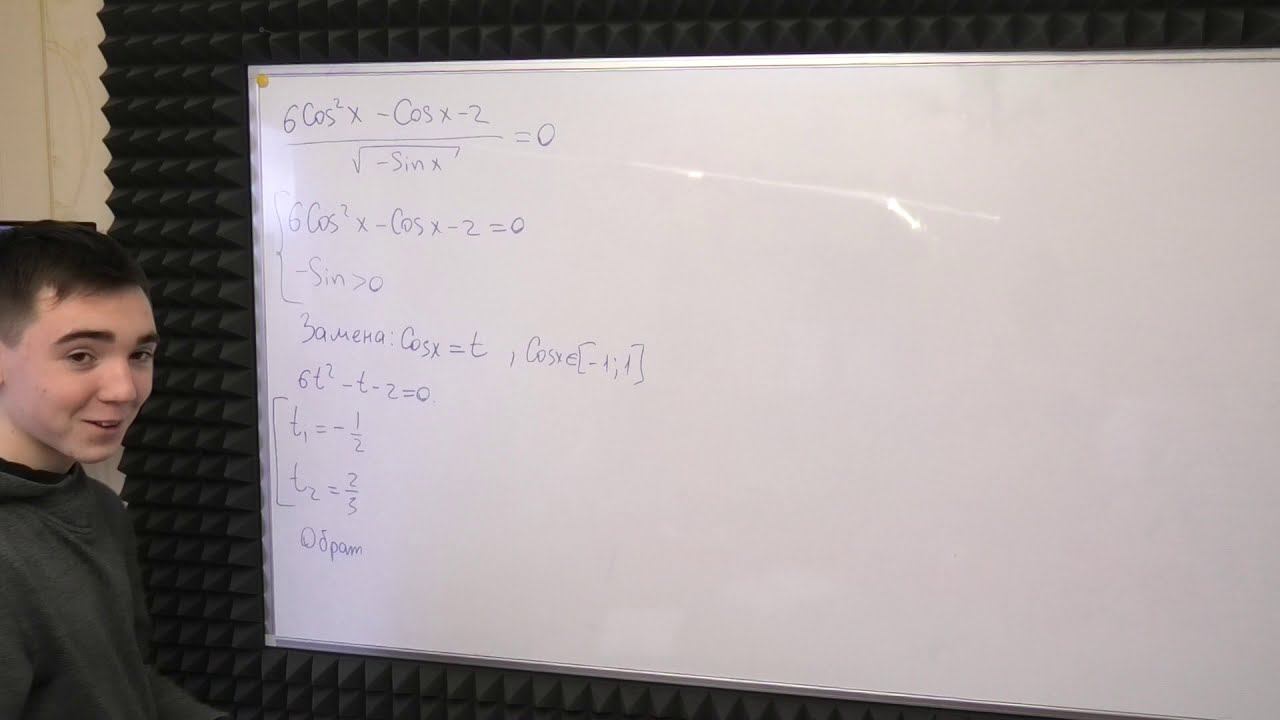 6Cos²x - Cosx - 2
√-Sinx = 0
6Cos²x - Cosx - 2 = 0
-Sin>0
Замена: Cosx = t , Cosx∈[-1;1]
6t² - t - 2 = 0.
t₁ = - 1/2
t₂ = 2/3
Обрат